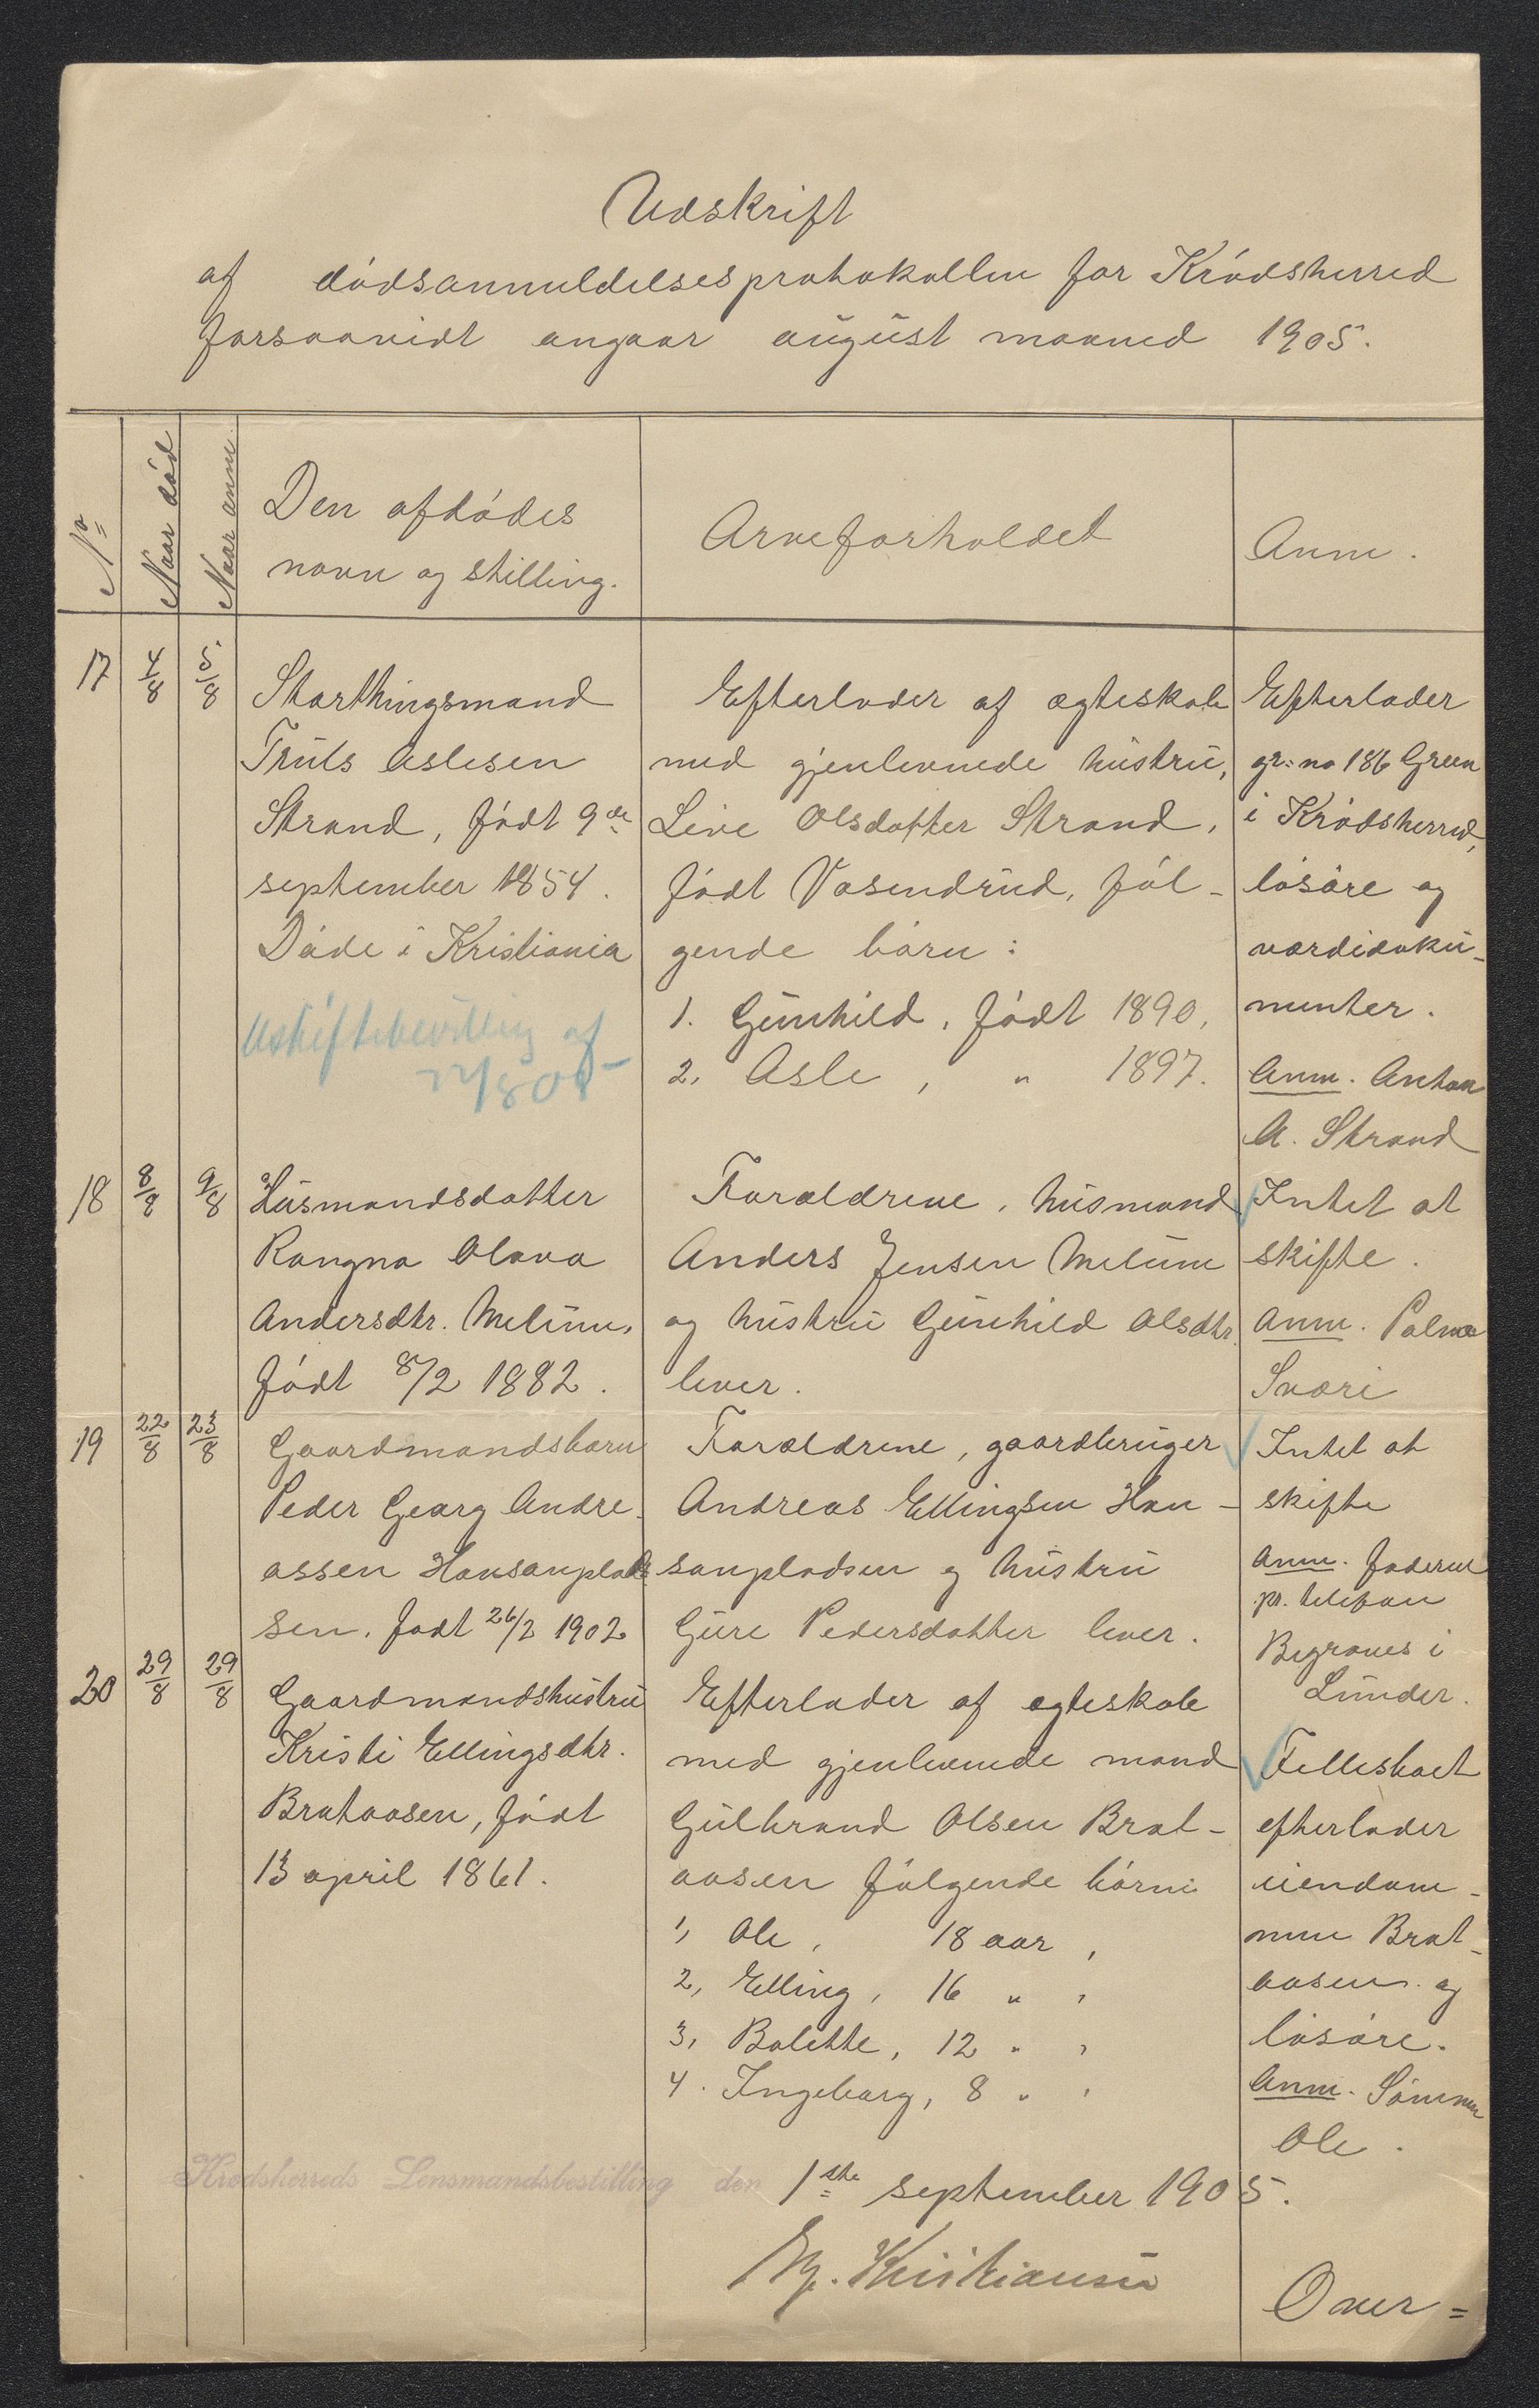 Udskrift
af dødsanmeldelsesprotokollen for Krødsherred
forsaavidt angaar august maaned 1905.
No
Naar død
Naar anm.
Den afdødes
navn og stilling.
Arveforholdet
Anm.
17
4/8
5/8
Storthingsmand
Truls Aslesen
Strand, født 9de
september 1854.
Døde i Kristiania
Uskiftebevilling af
Efterlader af ægteskab
med gjenlevende hustru,
Live Olsdatter Strand,
født Vasendrud, føl-
gende børn:
1. Gunhild, født 1890,
2, Asle, " 1897.
Efterlader
gr: no 186 Green
i Krødsherred,
løsøre og
værdidoku-
menter.
Anm. Anton
A. Strand
18
8/8
9/8
Husmandsdatter
Rangna Olava
Andersdtr. Melum,
født 8/2 1882.
Forældrene, husmand
Anders Jensen Melum
og hustru Gunhild Olsdtr.
lever.
Intet at
skifte.
Anm. Palma
Sværi
19
22/8
23/8
Gaardmandsbarn
Peder Georg Andre-
assen Hansanplads-
sen. født 26/2 1902
Forældrene, gaardbruger
Andreas Ellingsen Han-
sanpladsen og hustru
Gure Pedersdatter lever.
Intet at
skifte
Anm. faderen
pr. telefon
Begraves i
Lunder.
20
29/8
29/8
Gaardmandshustru
Kristi Ellingsdtr.
Brataasen, født
13 april 1861.
Efterlader af ægteskab
med gjenlevende mand
Gulbrand Olsen Brat-
aasen følgende børn:
1, Ole, 18 aar,
2, Elling, 16 " ,
3, Bolette, 12 " ,
4. Ingeborg, 8 " ,
Fellesboet
efterlader
eiendom-
men Brat-
aasen og
løsøre.
Anm. Sønnen
Ole.
Krødsherreds Lensmandsbestilling den 1ste september 1905.
Kristiansen
Over=